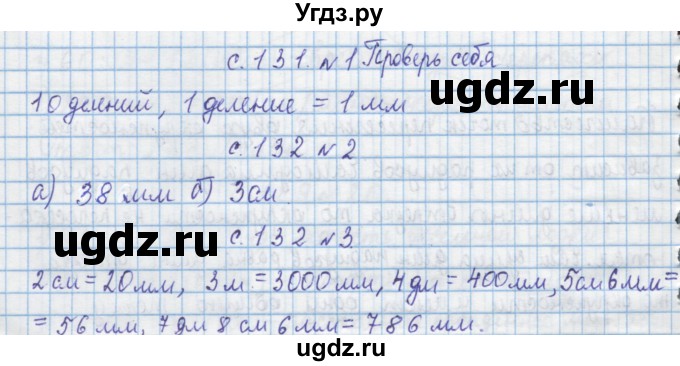 Угдз.ру
с. 131. №1 Проверь себя
ugdz.ru
10 делений, 1 деление = 1 мм
с. 132 №2
ugdz.ru
а) 38 мм б) 3 см
ugdz.ru
с. 132 №3
2 см = 20 мм, 3 м = 3000 мм, 4 дм = 400 мм, 5 см 6 мм =
= 56 мм, 7 дм 8 см 6 мм = 786 мм.
ugdz.ru